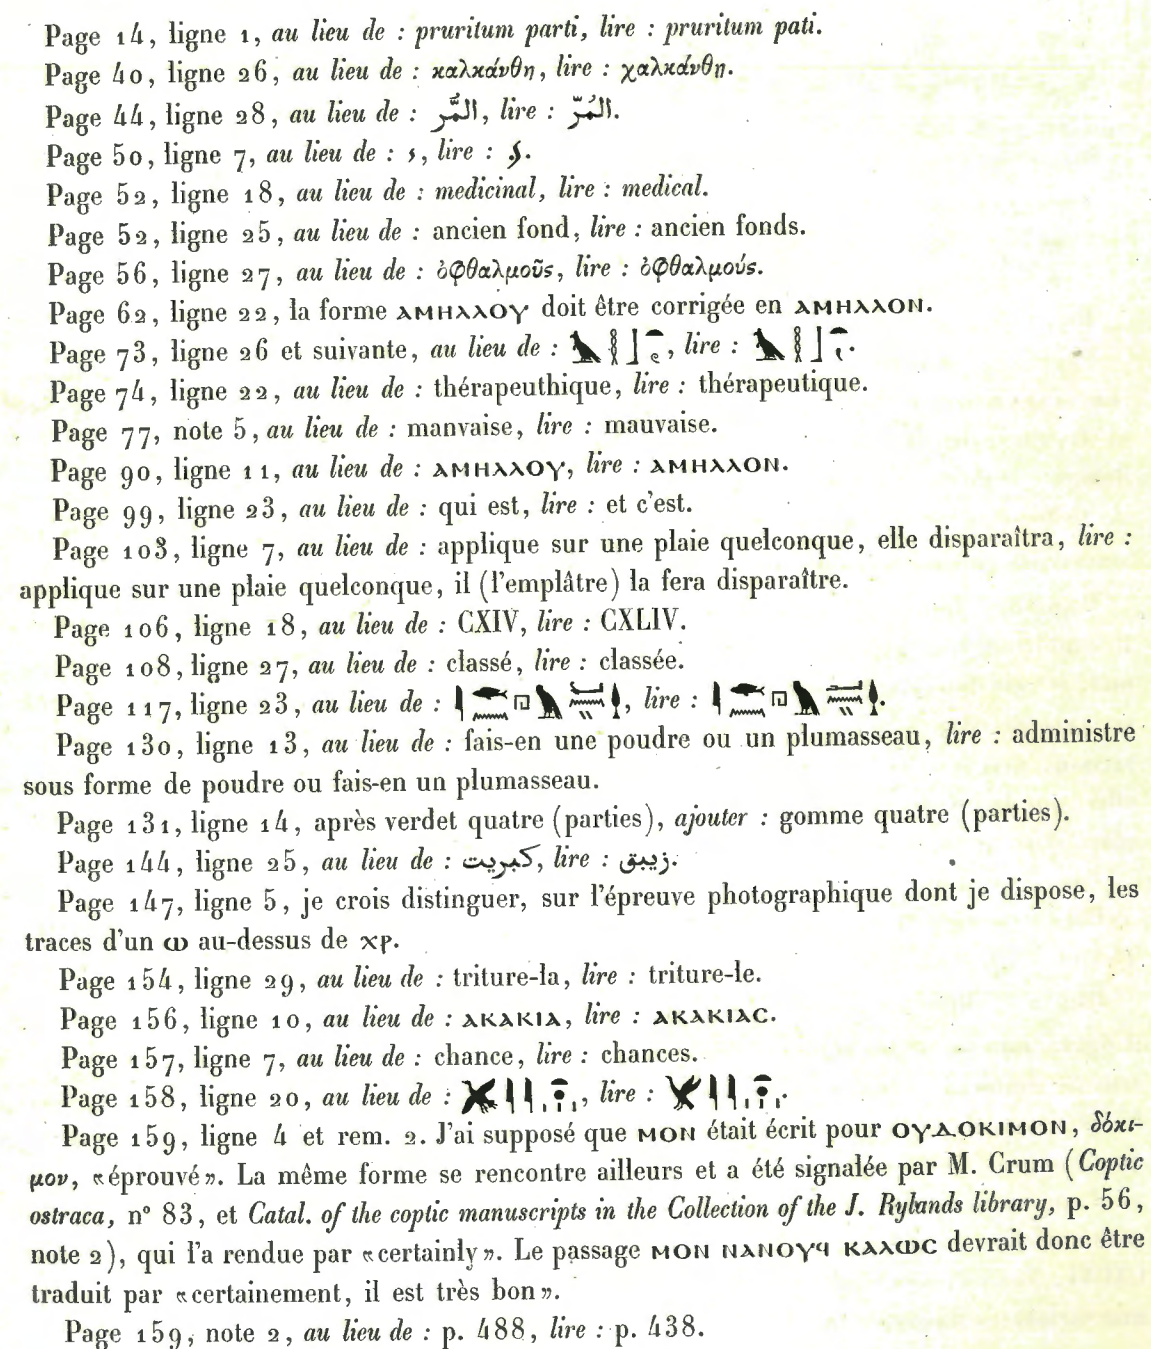 Page 14, ligne 1, au lieu de : pruritum parti, lire : pruritum pati.
Page 40, ligne 26, au lieu de : καλκάνθη, lire : χαλκάνθη.
Page 44, ligne 28, au lieu de : المُّر, lire : المُرّ.
Page 50, ligne 7, au lieu de : , lire : .
Page 52, ligne 18, au lieu de : medicinal, lire : medical.
Page 52, ligne 25, au lieu de : ancien fond, lire : ancien fonds.
Page 56, ligne 27, au lieu de : ὀφθαλμοῦς, lire : ὀφθαλμούς.
Page 62, ligne 22, la forme ⲁⲙⲏⲗⲗⲟⲩ doit être corrigée en ⲁⲙⲏⲗⲗⲟⲛ.
Page 73, ligne 26 et suivante, au lieu de : , lire : .
Page 74, ligne 22, au lieu de : thérapeuthique, lire : thérapeutique.
Page 77, note 5, au lieu de : manvaise, lire : mauvaise.
Page 90, ligne 11, au lieu de : ⲁⲙⲏⲗⲗⲟⲩ, lire : ⲁⲙⲏⲗⲗⲟⲛ.
Page 99, ligne 23, au lieu de : qui est, lire : et c'est.
Page 103, ligne 7, au lieu de : applique sur une plaie quelconque, elle disparaîtra, lire :
applique sur une plaie quelconque, il (l'emplâtre) la fera disparaître.
Page 106, ligne 18, au lieu de : CXIV, lire : CXLIV.
Page 108, ligne 27, au lieu de : classé, lire : classée.
Page 117, ligne 23, au lieu de : , lire : .
Page 130, ligne 13, au lieu de : fais-en une poudre ou un plumasseau, lire : administre
sous forme de poudre ou fais-en un plumasseau.
Page 131, ligne 14, après verdet quatre (parties), ajouter : gomme quatre (parties).
Page 144, ligne 25, au lieu de : كبريت, lire : زيبق.
Page 147, ligne 5, je crois distinguer, sur l'épreuve photographique dont je dispose, les
traces d'un ⲱ au-dessus de ⲭⲣ.
Page 154, ligne 29, au lieu de : triture-la, lire : triture-le.
Page 156, ligne 10, au lieu de : ⲁⲕⲁⲕⲓⲁ, lire : ⲁⲕⲁⲕⲓⲁⲥ.
Page 157, ligne 7, au lieu de : chance, lire : chances.
Page 158, ligne 20, au lieu de : , lire : .
Page 159, ligne 4 et rem. 2. J'ai supposé que ⲙⲟⲛ était écrit pour ⲟⲩⲇⲟⲕⲓⲙⲟⲛ, δόκι-
μον, «éprouvé». La même forme se rencontre ailleurs et a été signalée par M. Crum (Coptic
ostraca, n° 83, et Catal. of the coptic manuscripts in the Collection of the J. Rylands library, p. 56,
note 2), qui l'a rendue par «certainly». Le passage ⲙⲟⲛ ⲛⲁⲛⲟⲩϥ ⲕⲁⲗⲱⲥ devrait donc être
traduit par «certainement, il est très bon».
Page 159, note 2, au lieu de : p. 488, lire : p. 438.